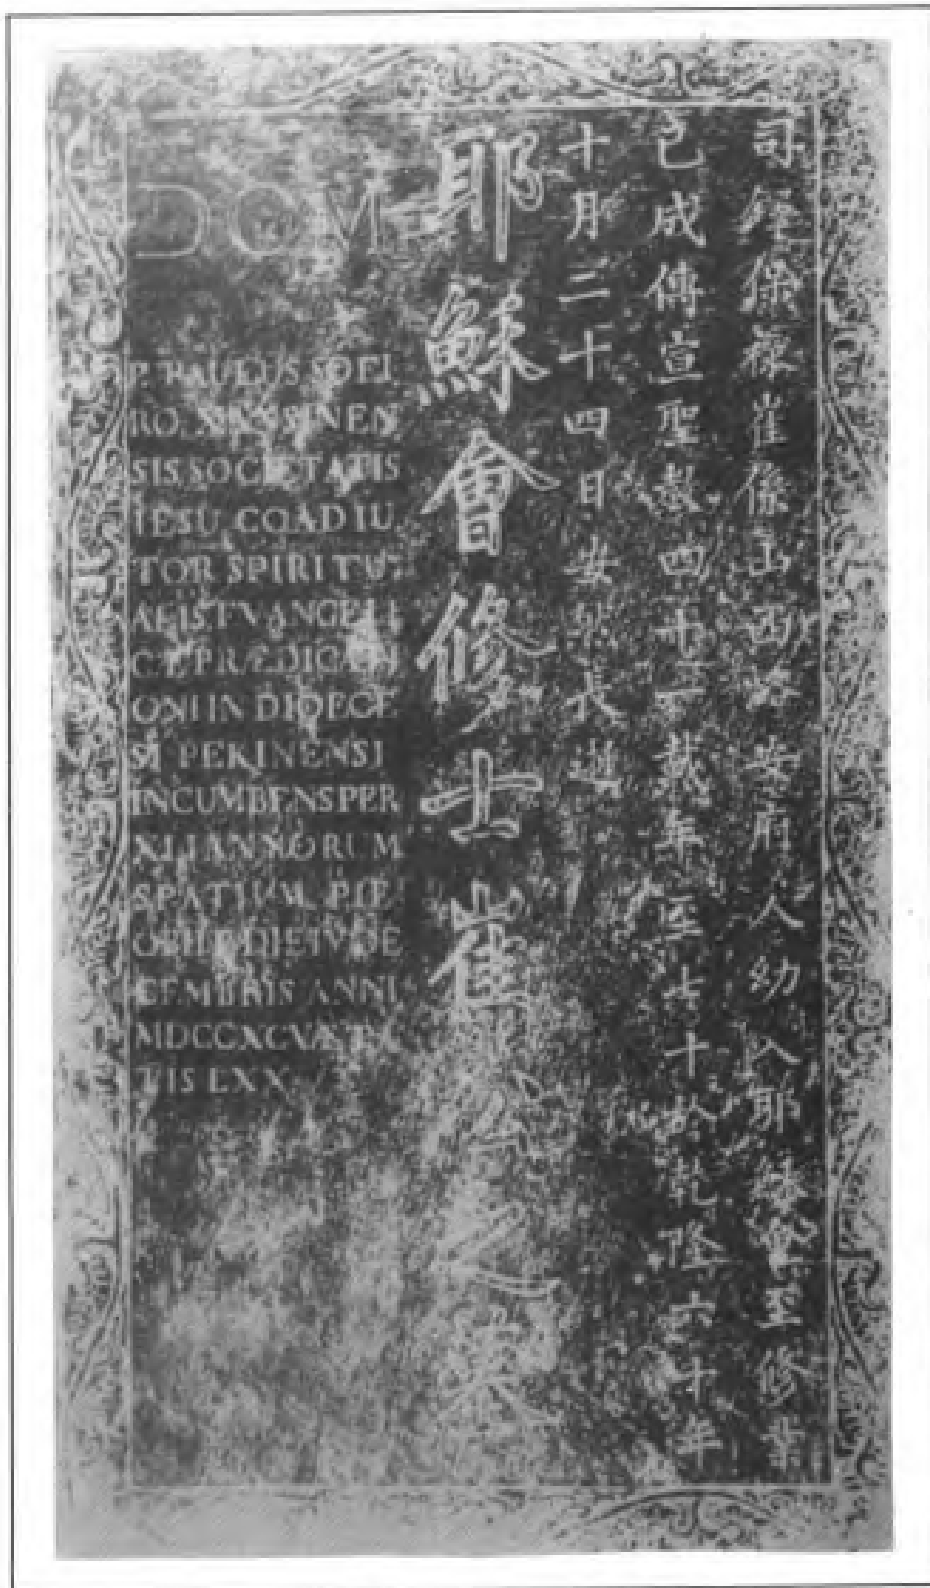 司鐸保祿崔係山西潞安府人幼入耶穌會至修業
已成傳宣聖教四十一載年至七十於乾隆六十年
十月二十四日安然長逝
耶穌會修士崔公之墓
DOM
P. PAULUS SOEI
RO XANSINEN
SIS SOCIETATIS
IESU COADIU
TOR SPIRITU
ALIS EVANGELI
CÆ PRÆDICATI
ONI IN DIOECE
SI PEKINENSI
INCUMBENS PER
XLI ANNORUM
SPATIUM PIE
OBIIT DIE IV DE
CEMBRIS ANNI
MDCCXCV ÆTA
TIS LXX